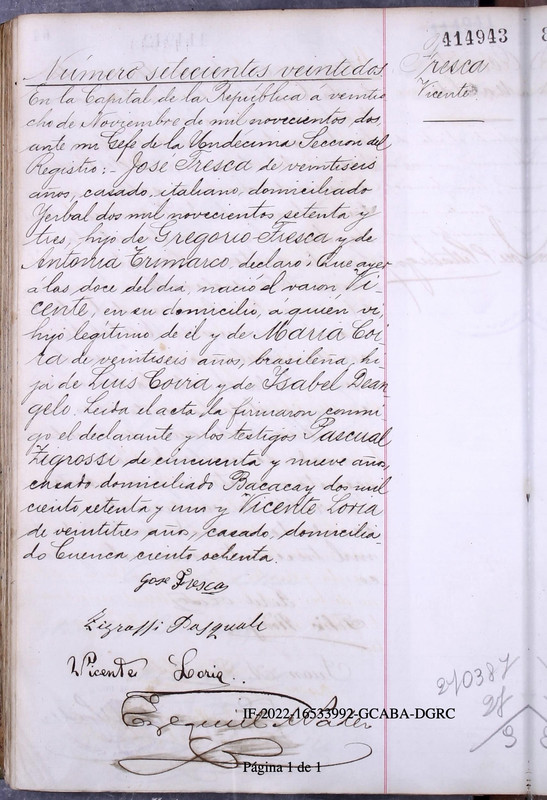 414943
Fresca
Vicente
Número setecientos veintidos
En la Capital de la República a veintio
cho de Noviembre de mil novecientos dos,
ante mi Gefe de la Undécima Seccion del
Registro:- José Fresca de veintiseis
años, casado, italiano, domiciliado
Yerbal dos mil novecientos setenta y
tres, hijo de Gregorio Fresca y de
Antonia Trimarco, declaró: Que ayer
a las doce del dia, nació el varon Vi-
cente, en su domicilio, á quien vi,
hijo legítimo de él y de Maria Coi-
ra de veintiseis años, brasileña, hi-
ja de Luis Coira y de Isabel Dean-
gelo. Leida el acta, la firmaron conmi
go el declarante y los testigos Pascual
Zigrossi, de cincuenta y nueve años,
casado domiciliado Bacacay dos mil
ciento setenta y uno y Vicente Loria
de veintitres años, casado, domicilia-
do Cuenca ciento ochenta.
Gose Fresca
Zigrossi Pasquale
Vicente Loria
Ezequiel
IF-2022-16533992-GCABA-DGRC
Página 1 de 1
210387